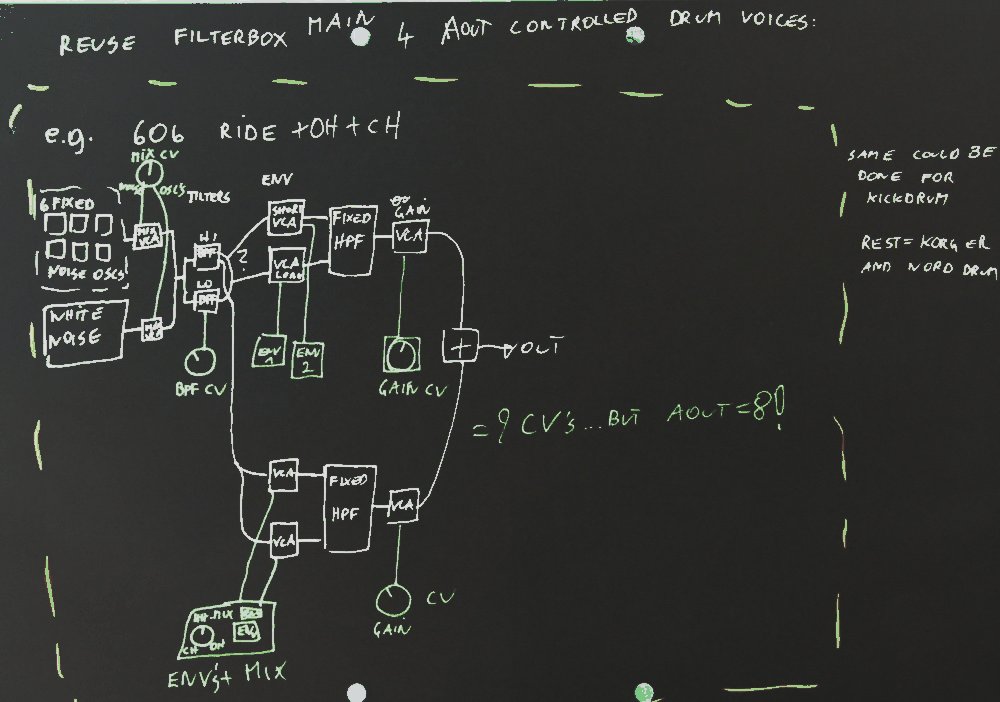 REUSE FILTERBOX MAIN 4 AOUT CONTROLLED DRUM VOICES:
e.g. 606 RIDE + OH + CH
MIX CV
OSC'S
FILTERS
6 FIXED
NOISE OSCS
WHITE
NOISE
MIX
VCA
HI
BPF
LO
BPF
?
BPF CV
ENV
SHORT
VCA
VCA
LONG
ENV
1
ENV
2
FIXED
HPF
GAIN
VCA
GAIN CV
+
OUT
= 9 CV's ... BUT AOUT = 8!
VCA
VCA
FIXED
HPF
VCA
GAIN
CV
MIX
ENV
CH
OH
ENV's + MIX
SAME COULD BE
DONE FOR
KICKDRUM
REST = KORG ER
AND NORD DRUM